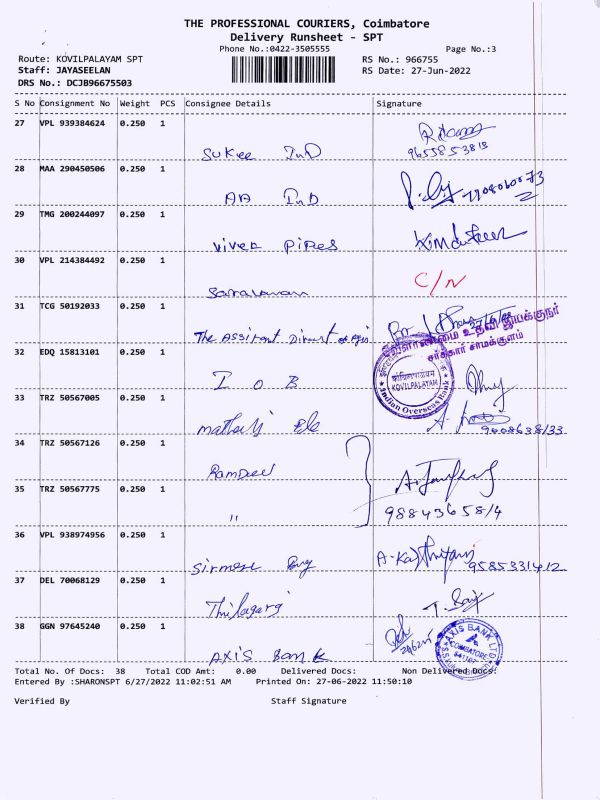 THE PROFESSIONAL COURIERS, Coimbatore
Delivery Runsheet - SPT
Phone No.:0422-3505555 Page No.:3
Route: KOVILPALAYAM SPT RS No.: 966755
Staff: JAYASEELAN RS Date: 27-Jun-2022
DRS No.: DCJB96675503
S No Consignment No Weight PCS Consignee Details Signature
27 VPL 939384624 0.250 1
Sukee InD
28 MAA 290450506 0.250 1
AA InD
29 TMG 200244097 0.250 1
Vivek Pipes
30 VPL 214384492 0.250 1 C/N
Saravanan
31 TCG 50192033 0.250 1
The Assitent Direct of Agri
வேளாண்மை உதவி இயக்குநர்
சர்க்கார் சாமக்குளம்
32 EDQ 15813101 0.250 1
I O B
KOVILPALAYAM
Indian Overseas Bank
33 TRZ 50567005 0.250 1
34 TRZ 50567126 0.250 1
35 TRZ 50567775 0.250 1
"
9884365814
36 VPL 938974956 0.250 1
9585331412
37 DEL 70068129 0.250 1
38 GGN 97645240 0.250 1
AXIS Bank
AXIS BANK LTD
COIMBATORE
Total No. Of Docs: 38 Total COD Amt: 0.00 Delivered Docs: Non Delivered Docs:
Entered By :SHARONSPT 6/27/2022 11:02:51 AM Printed On: 27-06-2022 11:50:10
Verified By Staff Signature